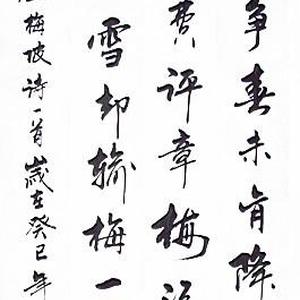 争春未肯降
费评章梅
雪却输梅一
梅坡诗一首歲在癸巳年